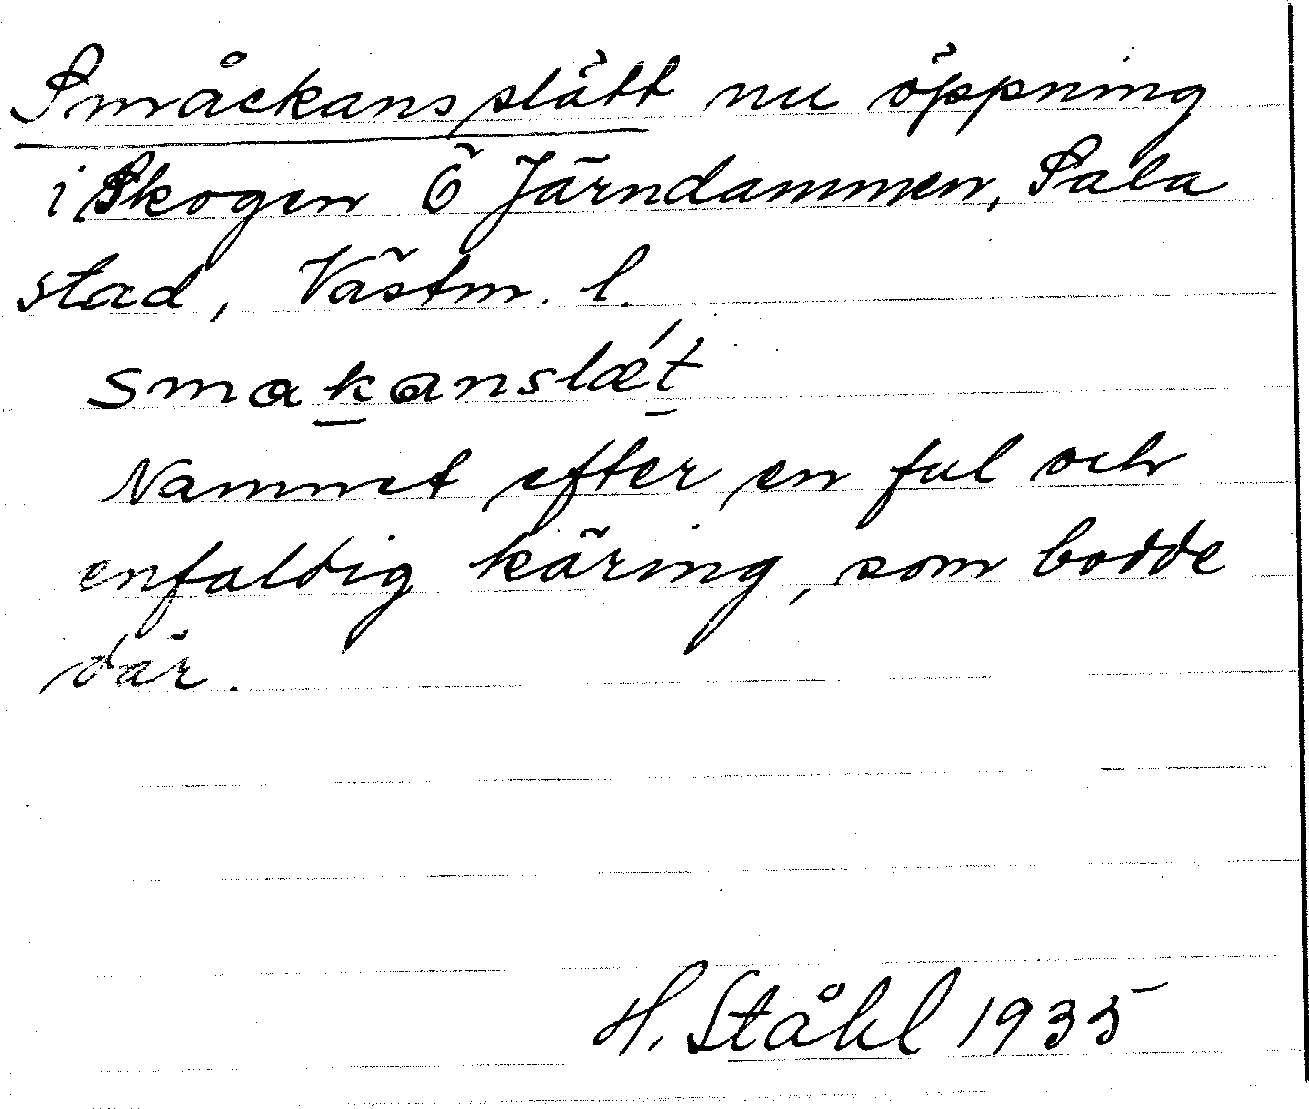 Småckansslätt nu öppning
i Skogen Ö Järndammen, Sala
stad, Västm. l.
smakanslæ´t
Namnet efter en ful och
enfaldig käring, som bodde
där.
H. Ståhl 1935